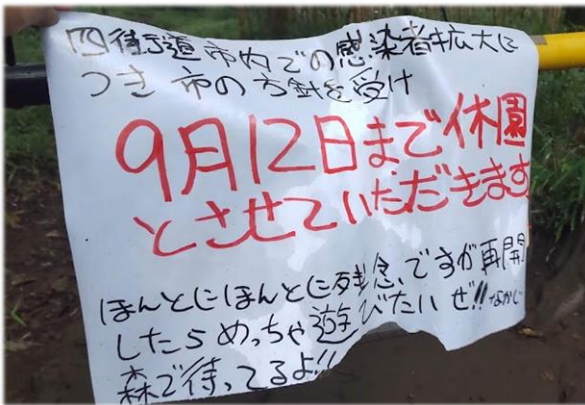 四街道市内での感染者拡大に
つき市の方針を受け
9月12日まで休園
とさせていただきます
ほんとにほんとに残念、ですが再開
したらめっちゃ遊びたいぜ!!なかじ
森で待ってるよ!!